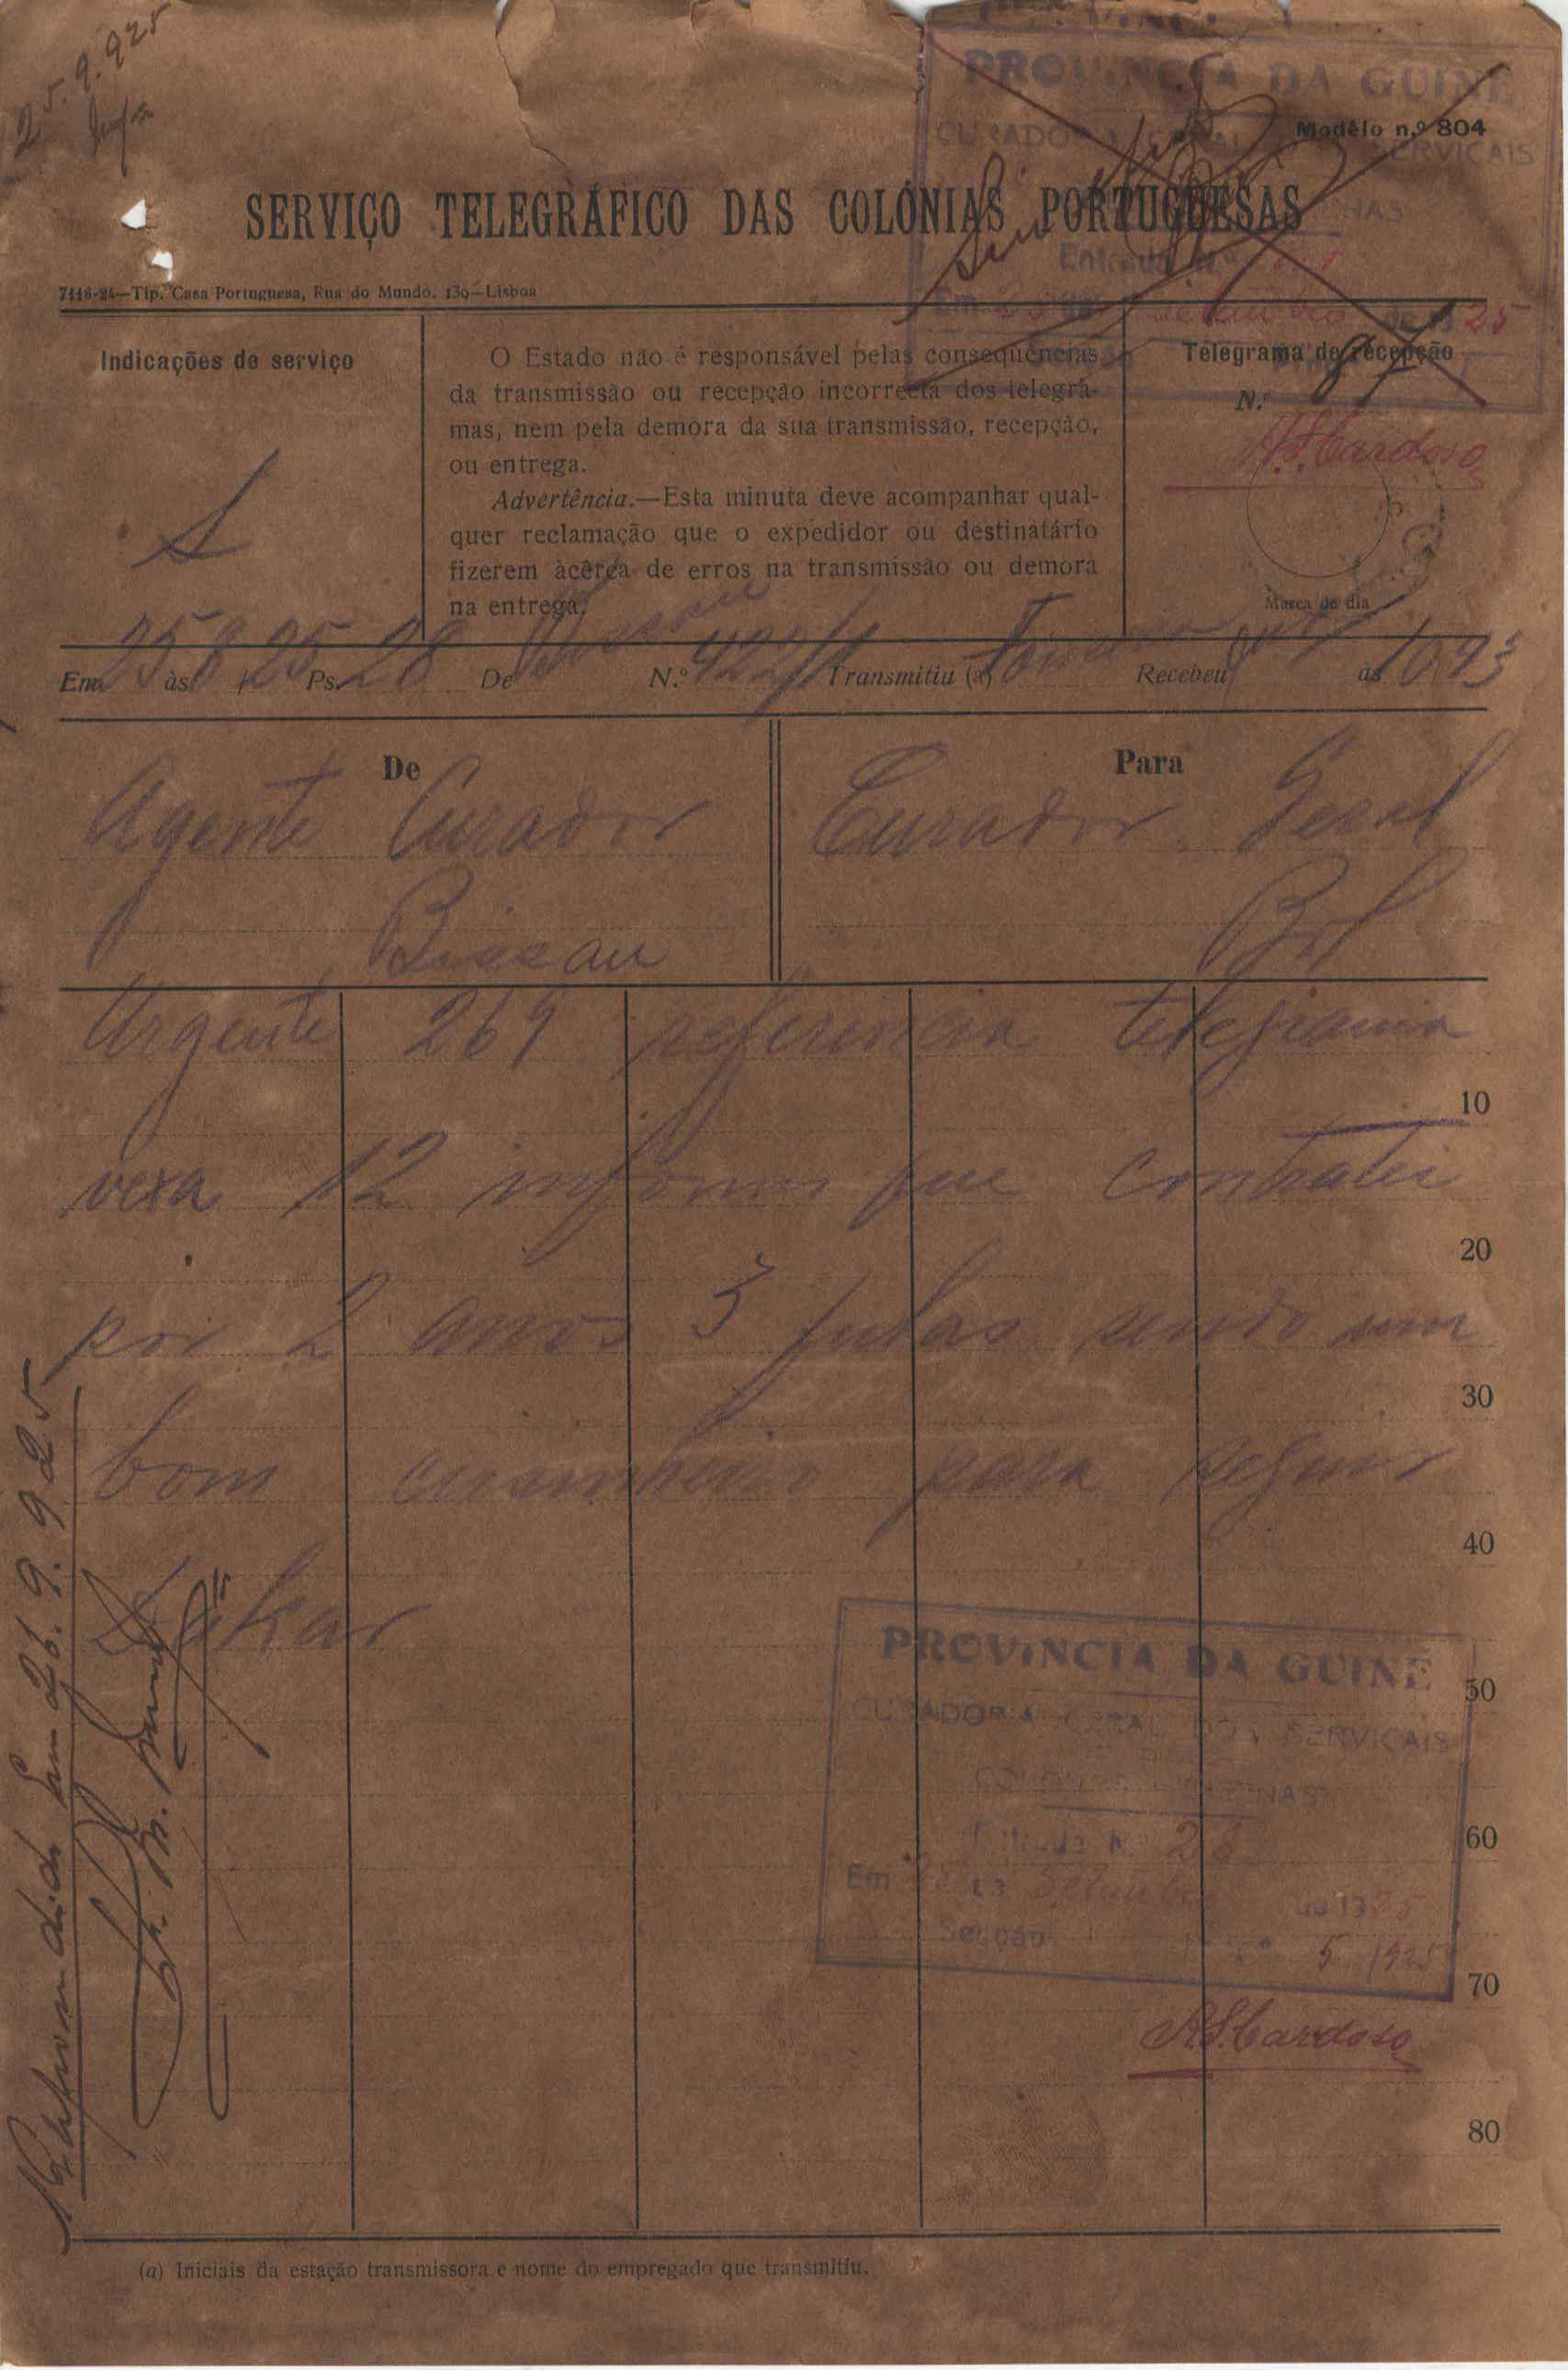 25.9.925
PROVINCIA DA GUINÉ
Modêlo n.º 804
CURADORIA GERAL SERVIÇAIS
SERVIÇO TELEGRÁFICO DAS COLÓNIAS PORTUGUESAS
Entrada N.º
7116-24—Tip. Casa Portuguesa, Rua do Mundo, 139—Lisboa
Em 25 de Setembro de 1925
Indicações de serviço
S
O Estado não é responsável pelas consequências
da transmissão ou recepção incorrecta dos telegra-
mas, nem pela demora da sua transmissão, recepção,
ou entrega.
Advertência.—Esta minuta deve acompanhar qual-
quer reclamação que o expedidor ou destinatário
fizerem àcêrca de erros na transmissão ou demora
na entrega.
Telegrama de recepção
N.º
A.S. Cardoso
Marca de dia
Em 25 às 8 h 25 Ps. 28 De Bissau N.º 422/1 Transmitiu (a) Recebeu às
De
Agente Curador
Bissau
Para
Curador Geral
Bol
Urgente 269 referencia telegrama
10
vexa 12 informo que contratei
20
por 2 anos 3 fulas sendo um
30
bom cusinheiro para seguir
40
Dakar
PROVINCIA DA GUINÉ
50
CURADORIA GERAL DOS SERVIÇAIS
E
COLONOS INDIGENAS
Entrada N.º 28
60
Em 25 de Setembro de 1925
Secção 5 /925
70
A.S. Cardoso
80
Respondido em 26.9.925
(a) Iniciais da estação transmissora e nome do empregado que transmitiu.